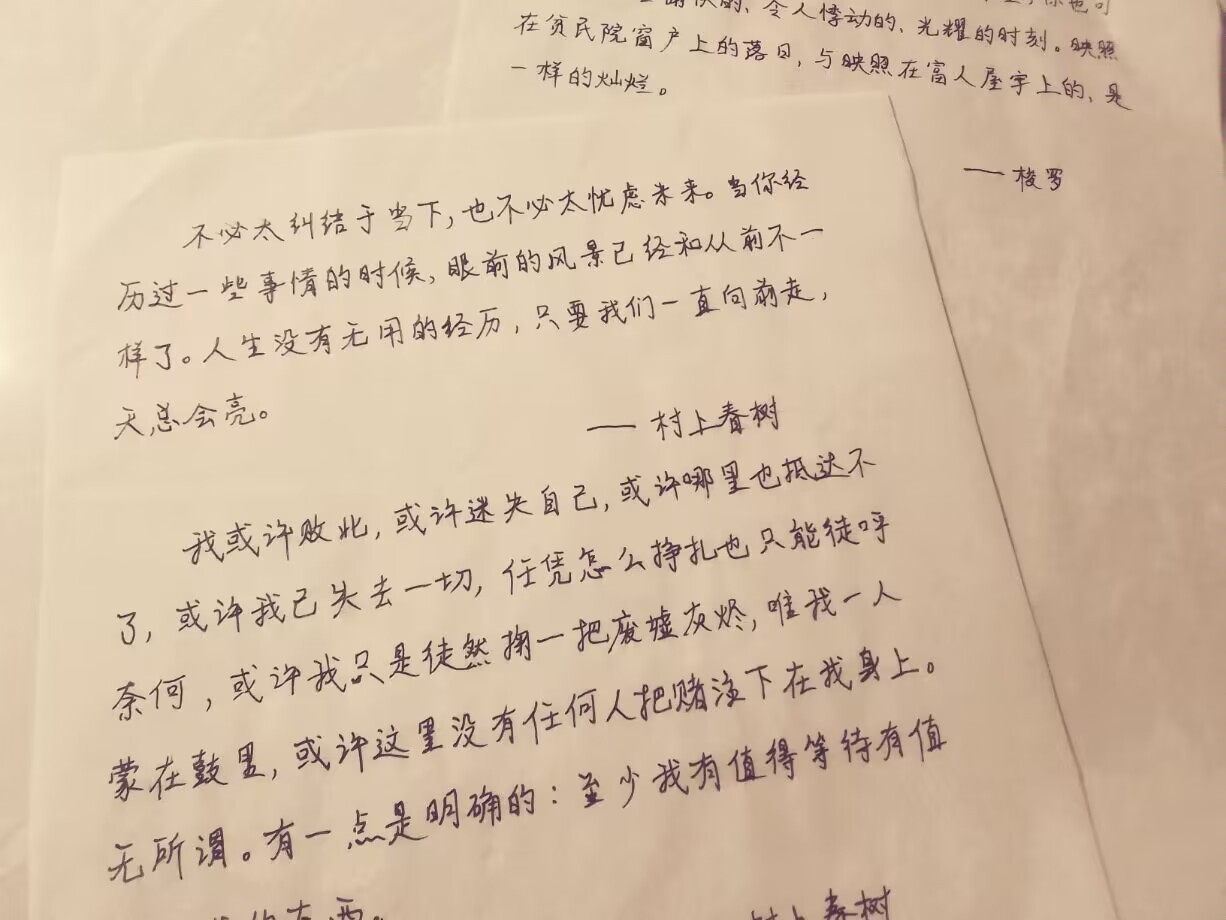 令人悸动的、光耀的时刻。映照
在贫民院窗户上的落日，与映照在富人屋宇上的、是
一样的灿烂。
—— 梭罗
不必太纠结于当下，也不必太忧虑未来。当你经
历过一些事情的时候，眼前的风景已经和从前不一
样了。人生没有无用的经历，只要我们一直向前走，
天总会亮。
—— 村上春树
我或许败北，或许迷失自己，或许哪里也抵达不
了，或许我已失去一切，任凭怎么挣扎也只能徒呼
奈何，或许我只是徒然掬一把废墟灰烬，唯我一人
蒙在鼓里，或许这里没有任何人把赌注下在我身上。
无所谓。有一点是明确的：至少我有值得等待有值
东西。
村上春树